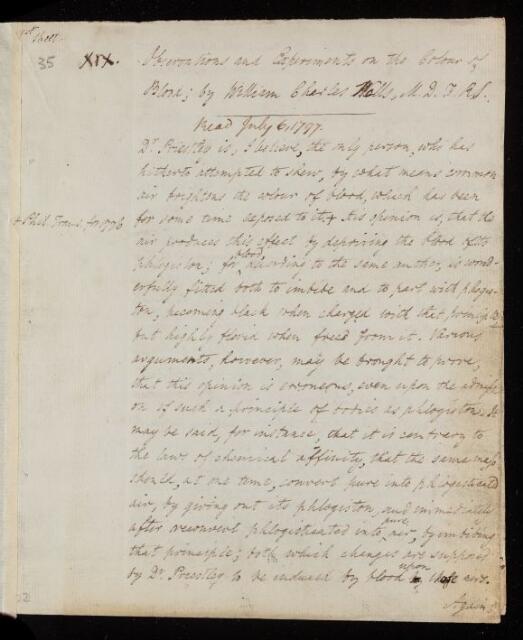 1st Sheet
35 XIX. Observations and Experiments on the Colour of
Blood; by William Charles Wells, M.D. F.R.S.
Read July 6. 1797.
Dr. Priestley is, I believe, the only person, who has
hitherto attempted to shew, by what means common
air brightens the colour of blood, which has been
for some time exposed to it.+ His opinion is, that the
+ Phil. Trans. for 1776
air produces this effect by depriving the blood of its
phlogiston; for blood, according to the same author, is wond-
erfully fitted both to imbibe and to part with phlogis-
ton, becoming black when charged with that principle,
but highly florid when freed from it. Various
arguments, however, may be brought to prove,
that this opinion is erroneous, even upon the admissi-
on of such a principle of bodies as phlogiston. It
may be said, for instance, that it is contrary to
the laws of chemical affinity, that the same mass
should, at one time, convert pure into phlogisticated
air, by giving out its phlogiston, and immediately
after reconvert phlogisticated into pure air, by imbibing
that principle; both which changes are supposed
by Dr. Priestley to be induced by blood upon those airs.
Again,
22